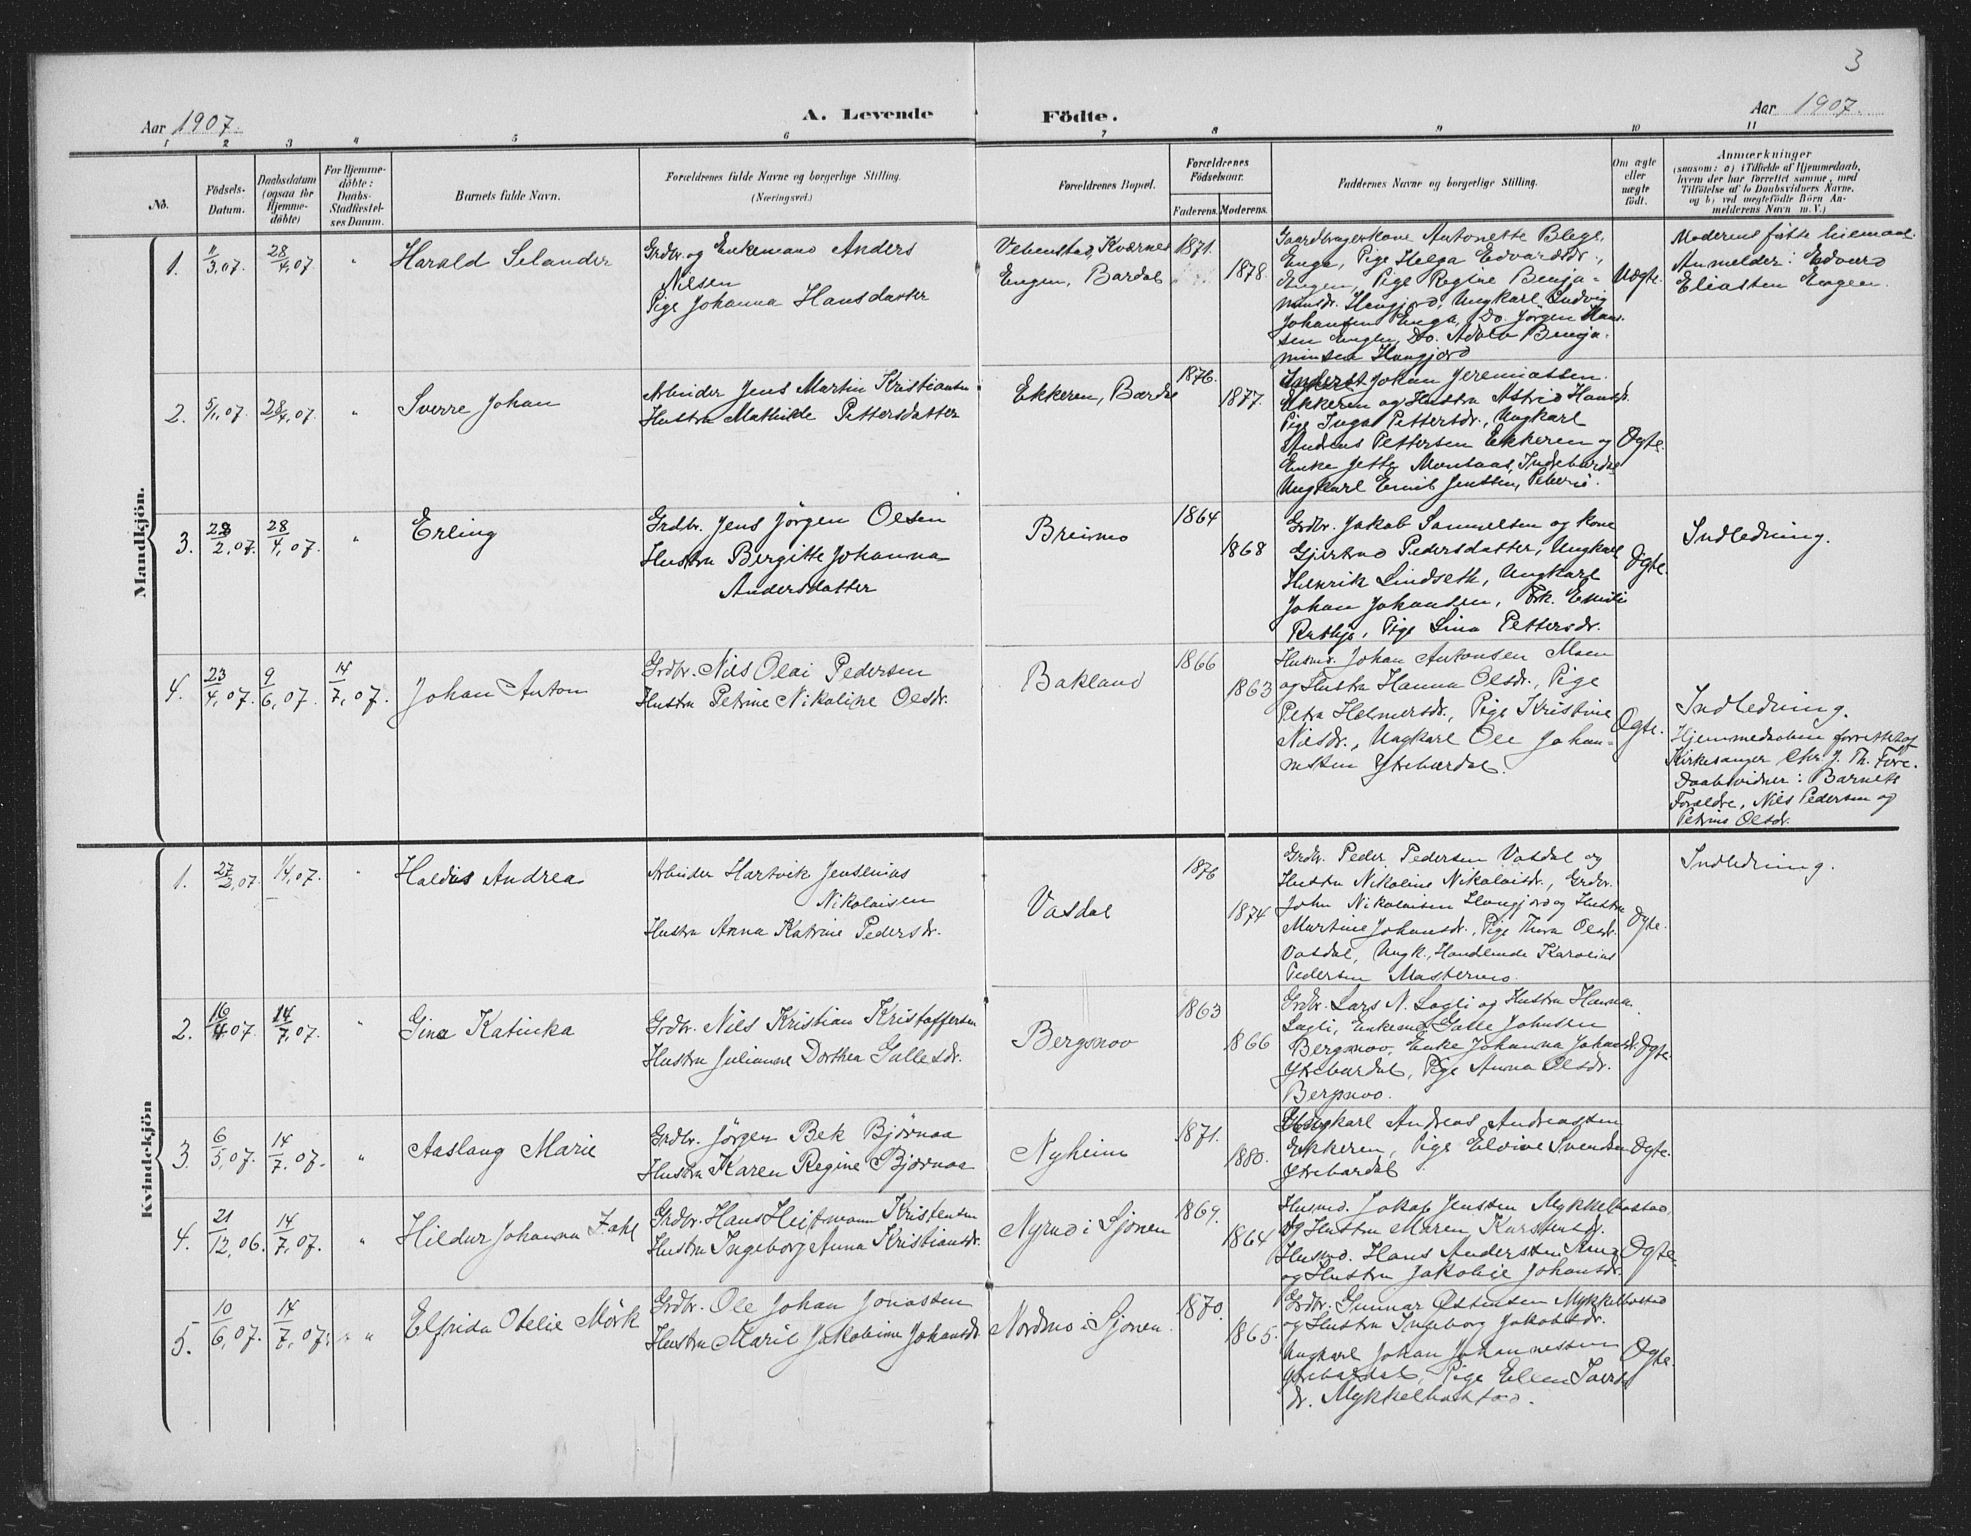 3
Aar 1907.
A. Levende Födte.
Aar 1907.
1 2 3 4 5 6 7 8 9 10 11
No.
Födsels-
Datum.
Daabsdatum
(ogsaa for
Hjemme-
döbte)
For Hjemme-
döbte:
Daabs-
Stadfæstel-
ses Datum.
Barnets fulde Navn.
Forældrenes fulde Navne og borgerlige Stilling.
(Næringsvei.)
Forældrenes Bopæl.
Forældrenes
Födselsaar.
Faderens. Moderens.
Faddernes Navne og borgerlige Stilling.
Om ægte
eller
uægte
födt.
Anmærkninger
(saasom: a) i Tilfælde af Hjemmedaab,
hvem der har forrettet samme, med
Tilföielse af to Daabsvidners Navne,
og b) ved uægtefödte Börn An-
melderens Navn m. V.)
Mandkjön.
1. 11/3.07. 28/4.07. "
Harald Selander
Grdbr. og Enkemand Anders
Nilsen
Pige Johanna Hansdatter
Engen, Bardal
1871.
1878.
Gaardbrugerkone Antonette Blege,
Enga, Pige Helga Edvardsdr.,
Engen, Pige Regine Benja-
minsdr. Haugjord, Ungkarl Ludvig
Johansen Enga, Do. Jörgen Han-
sen Engen, Do. Adolo Benja-
minsen Haugjord
Uægte.
Moderens första leiemaal.
Anmelder: Edvard
Eliassen Engen.
2. 5/1.07. 28/4.07. "
Sverre Johan
Arbeider Jens Martin Kristiansen
Hustru Mathilde Pettersdatter
Ekkeren, Bardal
1876.
1877.
Johan Jeremiassen
Ekkeren og Hustru Astrid Hansd.
Pige Inga Pettersdr., Ungkarl
Andreas Pettersen Ekkeren og
Enke Jette Monsaas, Indrebardal
Ungkarl Emil Jenssen,
Ægte.
3. 28/2.07. 28/4.07. "
Erling
Grdbr. Jens Jørgen Olsen
Hustru Bergitte Johanna
Andersdatter
Breimo
1864
1868
Grdbr. Jakob Samuelsen og kone
Gjertrud Pedersdatter, Ungkarl
Henrik Lindseth, Ungkarl
Johan Johansen, Frk. Emilie
Rutbjø, Pige Lina Pettersdr.
Ægte.
Indledning.
4. 23/4.07. 9/6.07. 14/7.07.
Johan Anton
Grdbr. Nils Olai Pedersen
Hustru Petrine Nikoline Olsdr.
Bakland
1866
1863
Husmd. Johan Antonsen Moen
og Hustru Hanna Olsdr., Pige
Petra Holmersdr., Pige Kristine
Nilsdr., Ungkarl Ole Johan-
nesen Ytrebardal.
Ægte.
Indledning.
Hjemmedaaben forrettet af
Kirkesanger Chr. J. Th. Fore.
Daabsvidner: Barnets
Foreldre, Nils Pedersen og
Petrine Olsdr.
Kvindekjön
1. 27/2.07. 14.07. "
Haldis Andrea
Arbeider Hartvik Jensenius
Nikolaisen
Hustru Anna Katrine Pedersdr.
Vasdal
1876
1874
Grdbr. Peder Pedersen Vasdal og
Hustru Nikoline Nikolaisdr., Grdbr.
John Nikolaisen Haugjord og Hustru
Martine Johansdr., Pige Thora Olsdr.
Vasdal, Ungk., Handlende Karolius
Pedersen Mastermo.
Ægte.
Indledning.
2. 16/4.07. 14/7.07. "
Gina Katinka
Grdbr. Nils Kristian Kristoffersen
Hustru Julianne Dorthea Gallesdr.
Bergmoo
1863
1866
Grdbr. Lars N. Sagli og Hustru Hanna
Sagli, Enkemd. Galle Johnsen
Bergmoo, Enke Johanna Johansdr.
Ytrebardal, Pige Anna Olsdr.
Bergmoo.
Ægte
3. 6/5.07. 14/7.07. "
Aaslaug Marie
Grdbr. Jørgen Bek Bjørnaa
Hustru Karen Regine Bjørnaa
Nyheim
1871.
1880.
Ungkarl Andreas Andreassen
Ekkeren, Pige Elvine Svendsen
Ytrebardal
Ægte.
4. 21/12.06. 14/7.07. "
Hildur Johanna Zahl
Grdbr. Hans Heitmann Kristensen
Hustru Ingeborg Anna Kristiansdr.
Nyrud i Sjonen
1867.
1864
Husmd. Jakob Jenssen Mykkelbostad,
og Hustru Maren Karstensdr.
Husmd. Hans Anderssen
og Hustru Jakobie Johansdr.
Ægte.
5. 10/6.07. 14/7.07. " "
Elfrida Otelie Mörk
Grdbr. Ole Johan Jonassen
Hustru Marie Jakobine Johansdr.
Nordmo i Sjonen
1870.
1865.
Grdbr. Gunnar Østensen Mykkelbostad
og Hustru Ingeborg Jakobsdr.
Ungkarl Johan Johannessen
Ytrebardal, Pige Ellen
dr. Mykkelbostad.
Ægte.